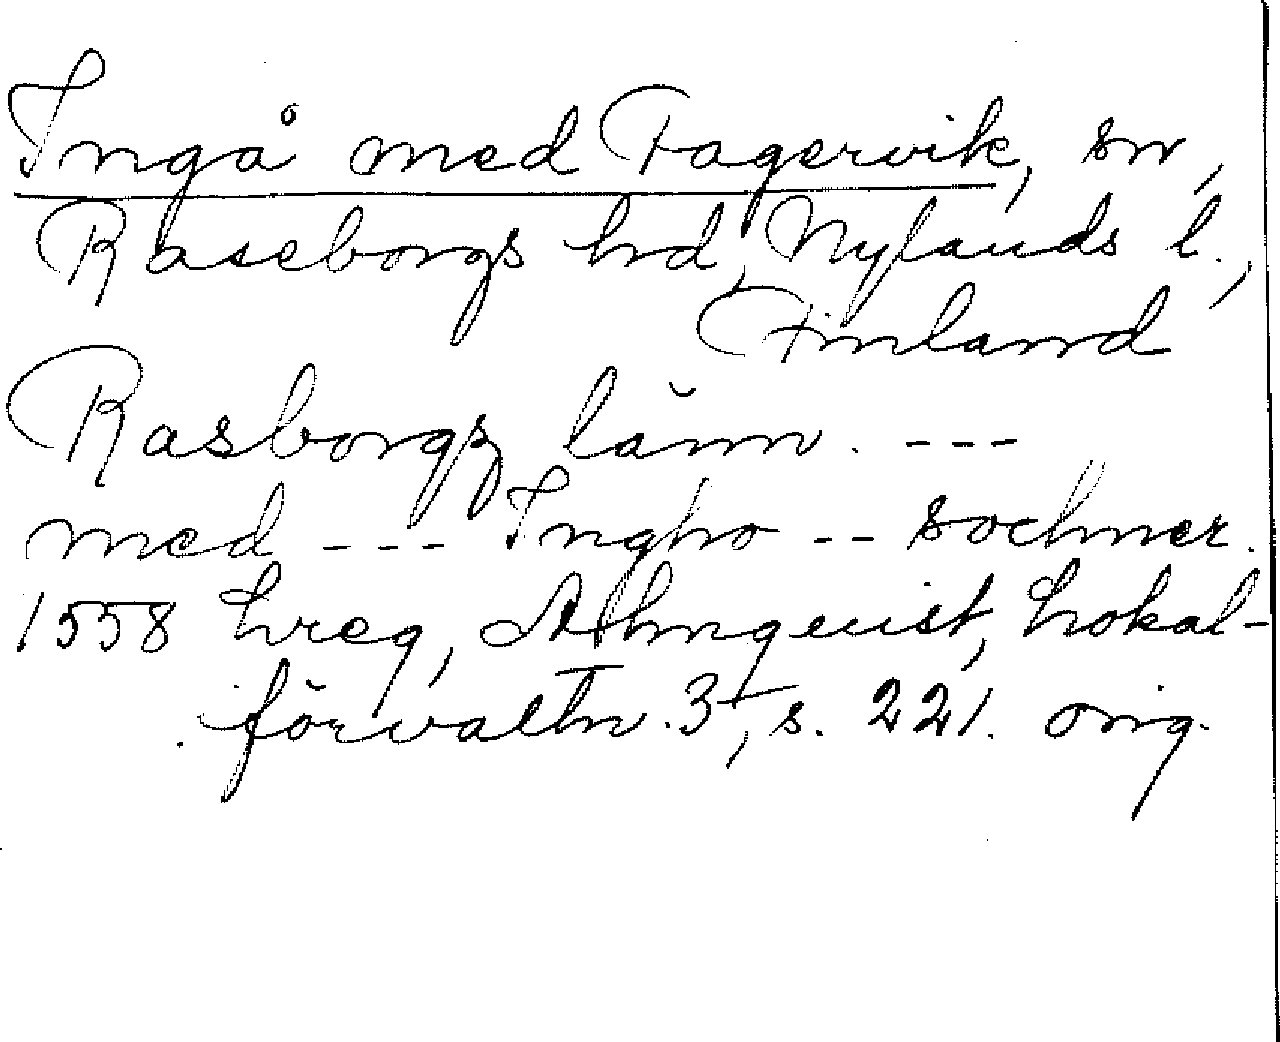 Ingå med Fagervik, sn,
Raseborgs hd, Nylands l.,
Finland
Rasborgz länn. ---
med --- Ingho -- sochner.
1558 Lreg, Almquist, Lokal-
förvaltn. 3, s. 221. orig.